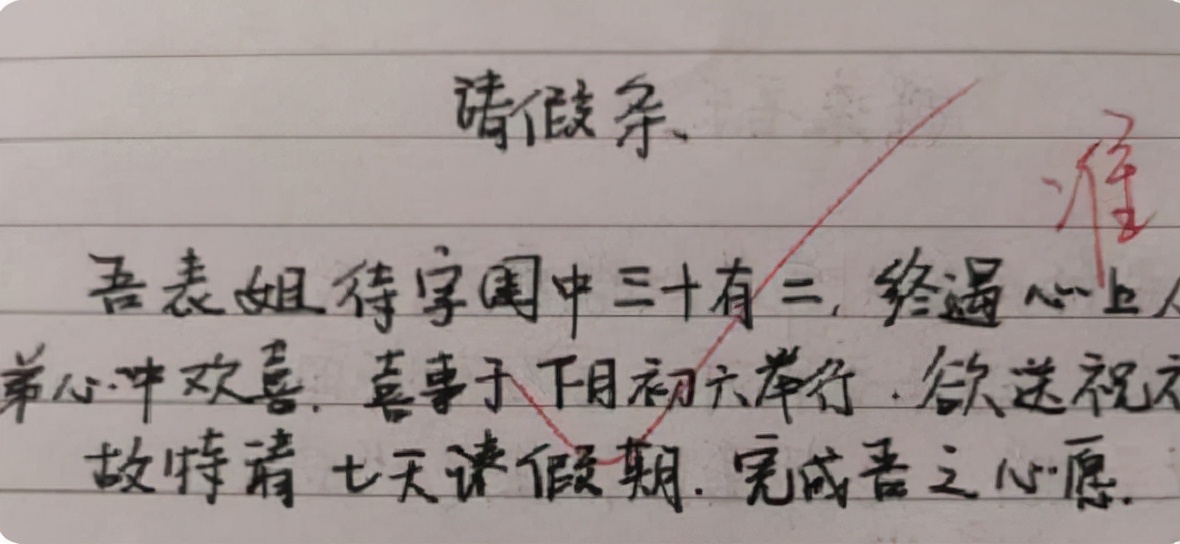 请假条
准
吾表姐待字闺中三十有二,终遇心上人
弟心中欢喜.喜事于下月初六举行.欲送祝
故特请七天课假期.完成吾之心愿.